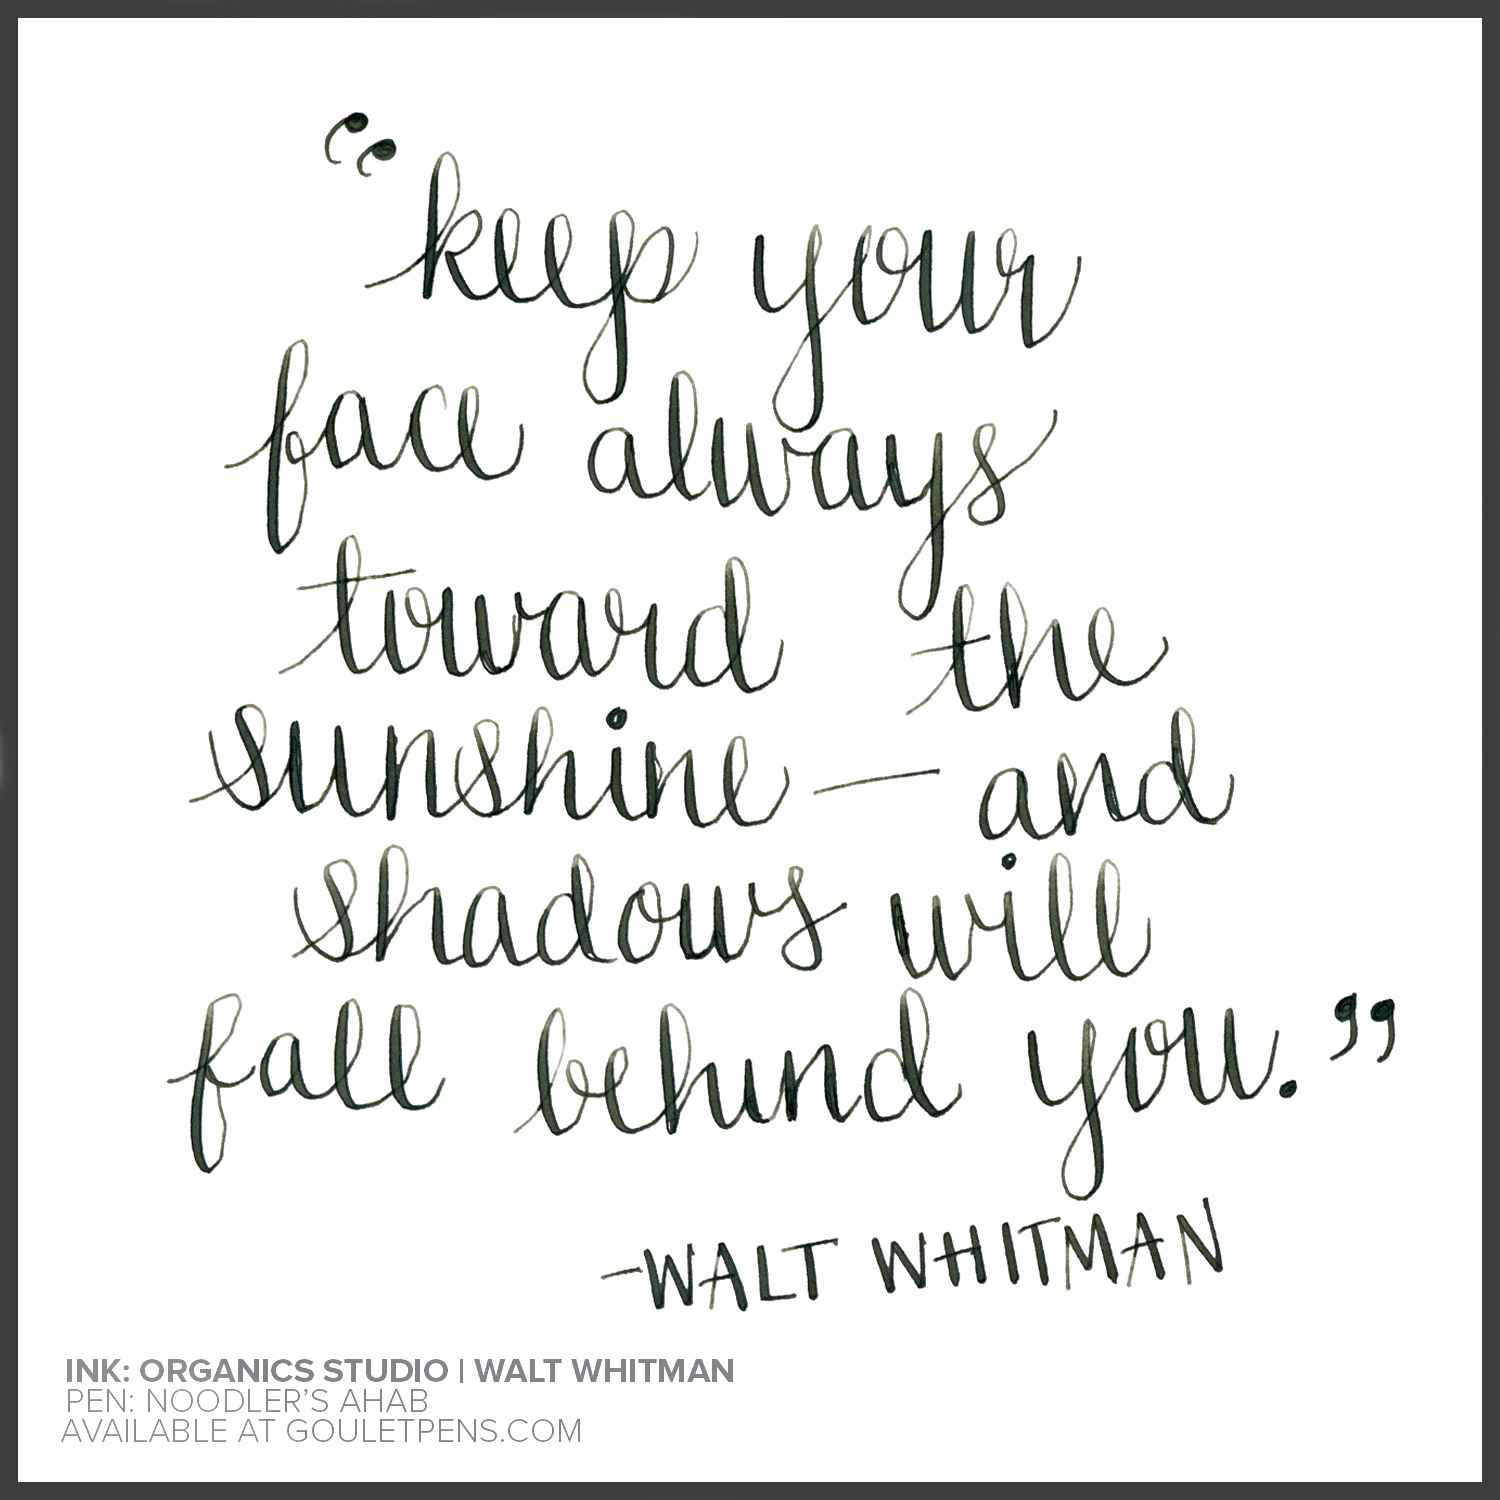 “keep your
face always
toward the
sunshine — and
shadows will
fall behind you.”
-WALT WHITMAN
INK: ORGANICS STUDIO | WALT WHITMAN
PEN: NOODLER’S AHAB
AVAILABLE AT GOULETPENS.COM